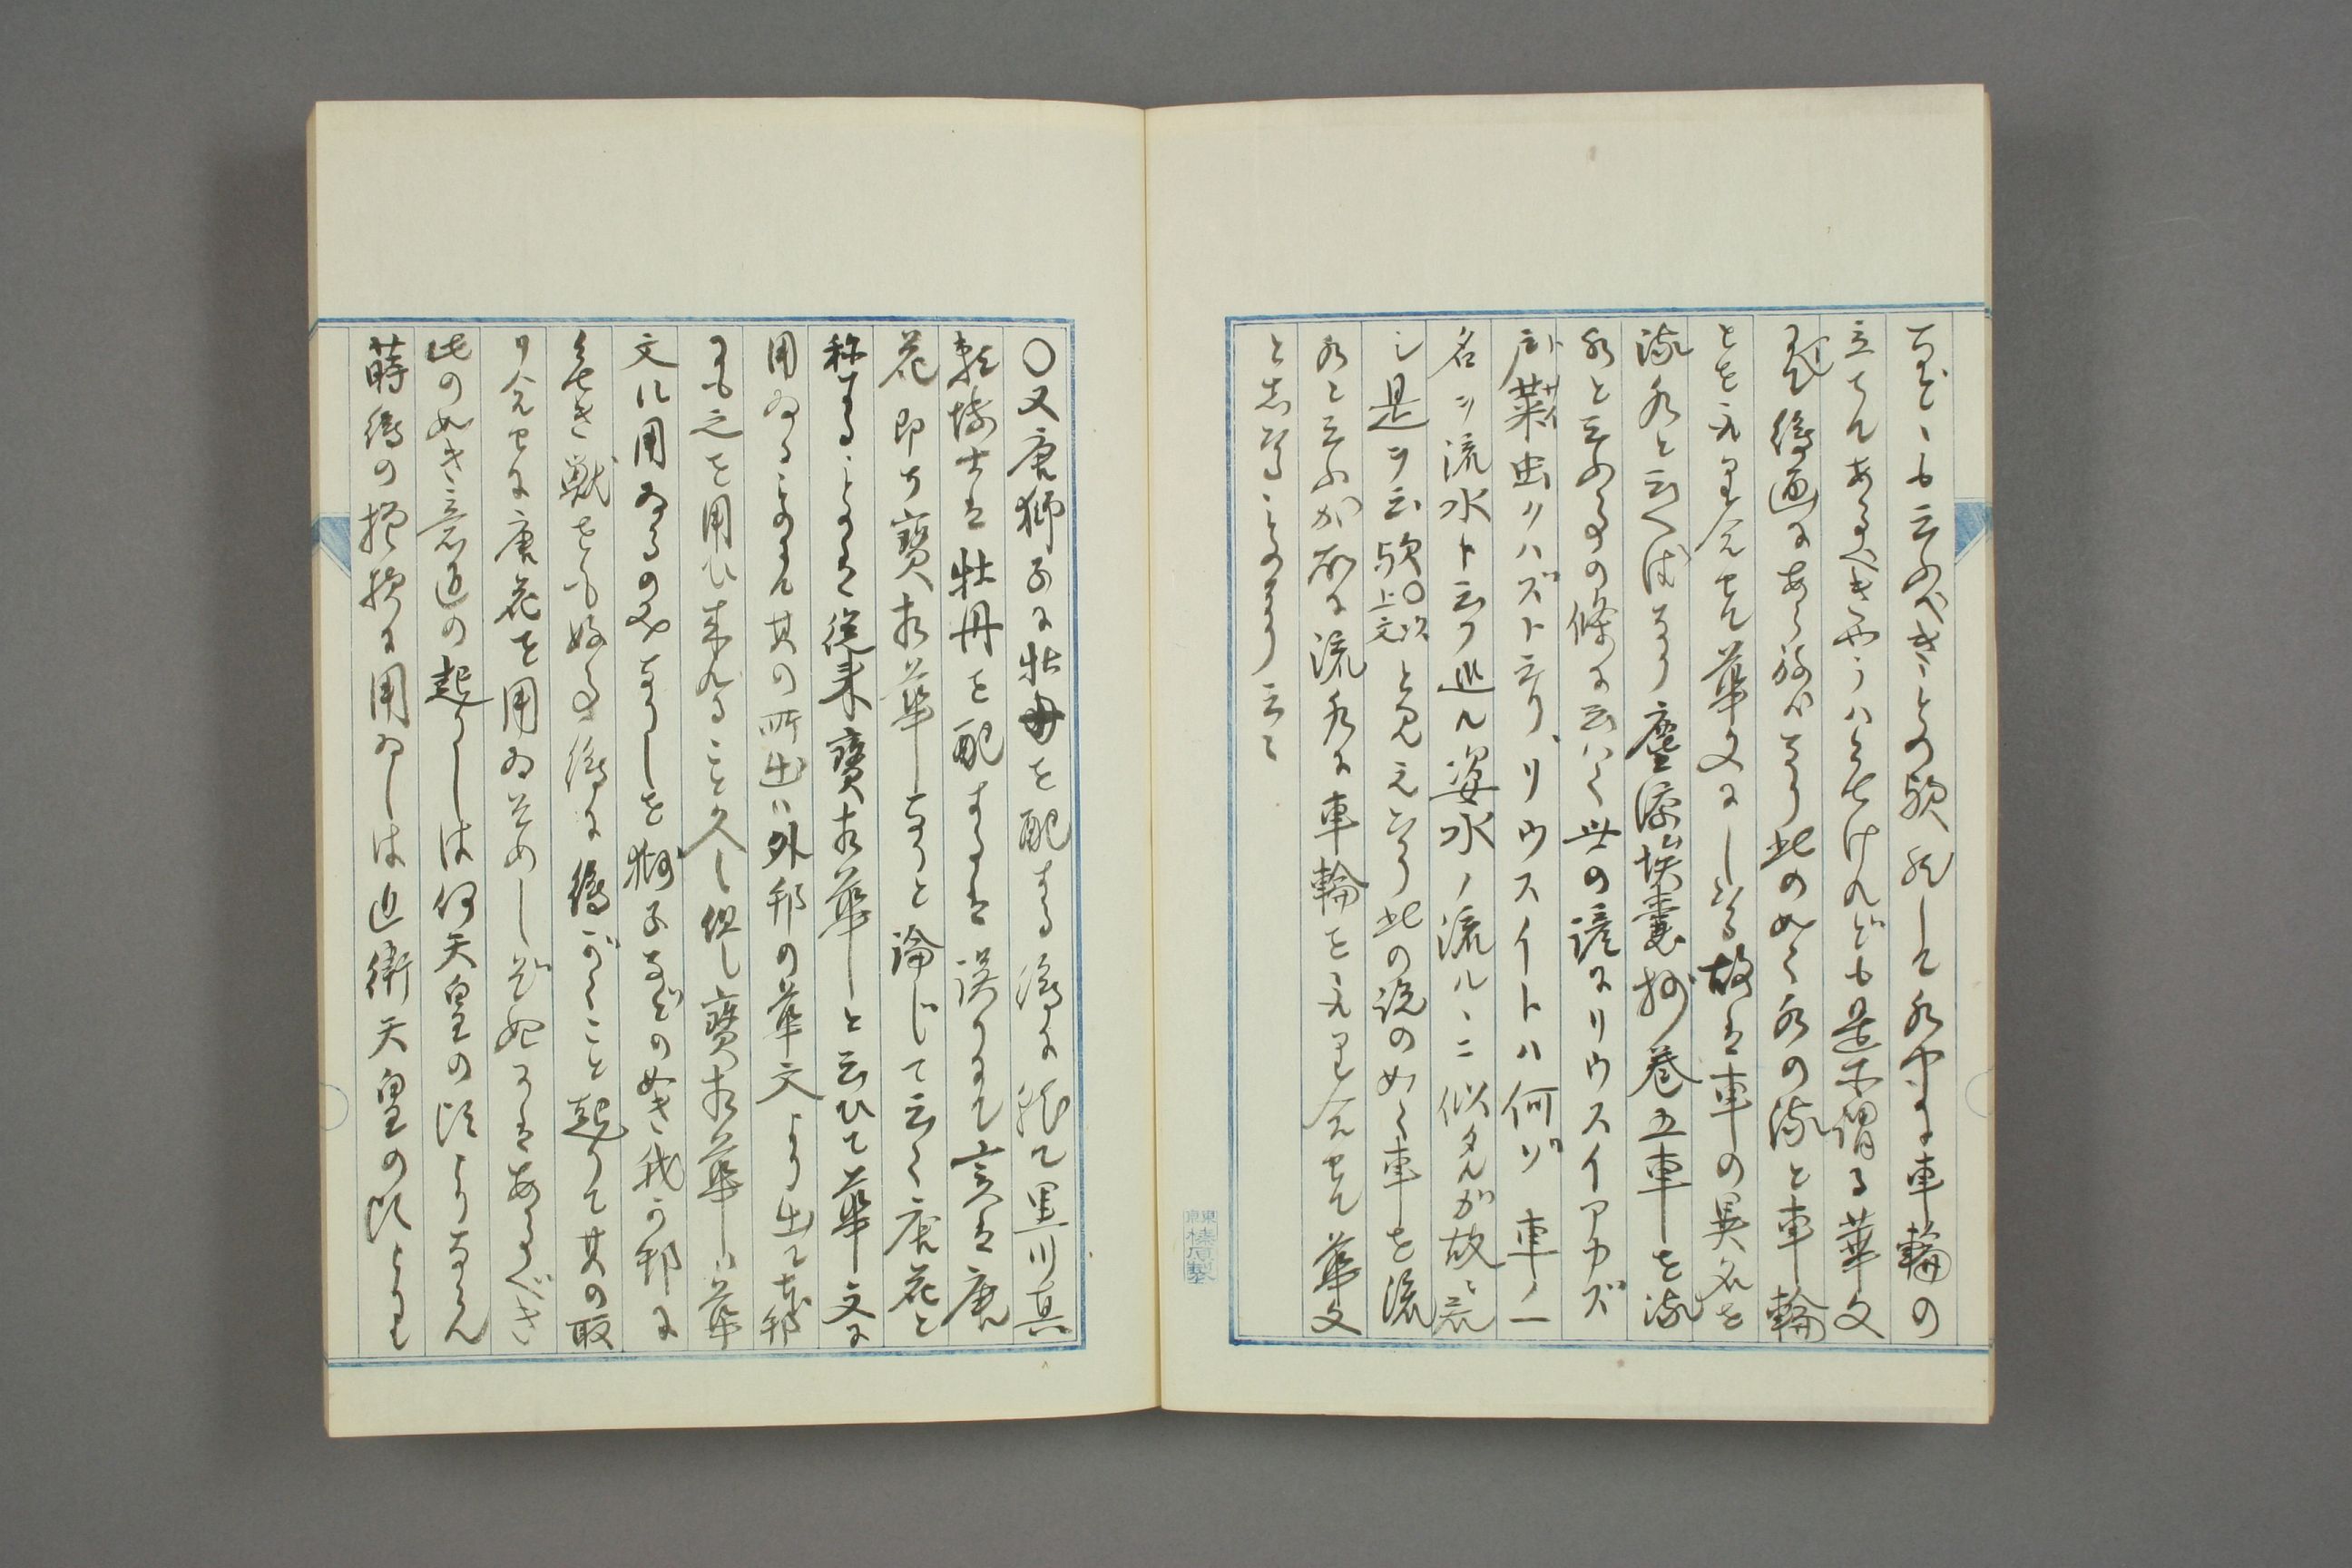 なども云ふべきことの歟然して水中に車輪の
立てんあるべきやうハなけれども是不謂る華文
にて給画にあらねバなり此の如く水の流と車輪
とを取り合せて華文にしたる故は車の異名を
流水と云へばなり塵添壒囊抄巻五車を流
水と云ふ事の條に云はく世の諺にリウスイアカズ
戸蠹虫クハズト云リ、リウスイトハ何ゾ車ノ一
名ヲ流水ト云フ巡ル姿水ノ流ルヽニ似タルガ故ニ名
シ是ヲ云歟〇以上文と見えたり此の説の如く車を流
水と云ふが故に流水に車輪を取り合せて華文
となしたることのなり云々
〇又唐獅子に牡丹を配する給に就て黒川真
頼博士は牡丹を配するは誤りにて実は唐
花即ち寶相華なりと論じて云く唐花と
称することは従来寶相華と云ひて華文に
用ゐることのにて其の所出ハ外邦の華文より出で本邦
にも之を用ひ来れること久し但し寶相華ハ華
文に用ゐるのみなりしを獅子などの如き我が邦に
なき獣をも好事給に給がくこと起りて其の取
り合せに唐花を用ゐそめしぞ始なるべき
此の如き意匠の起りしは何天皇の頃よりならん
蒔絵の模様に用ゐしは近衛天皇の頃よりも
東京榛原製